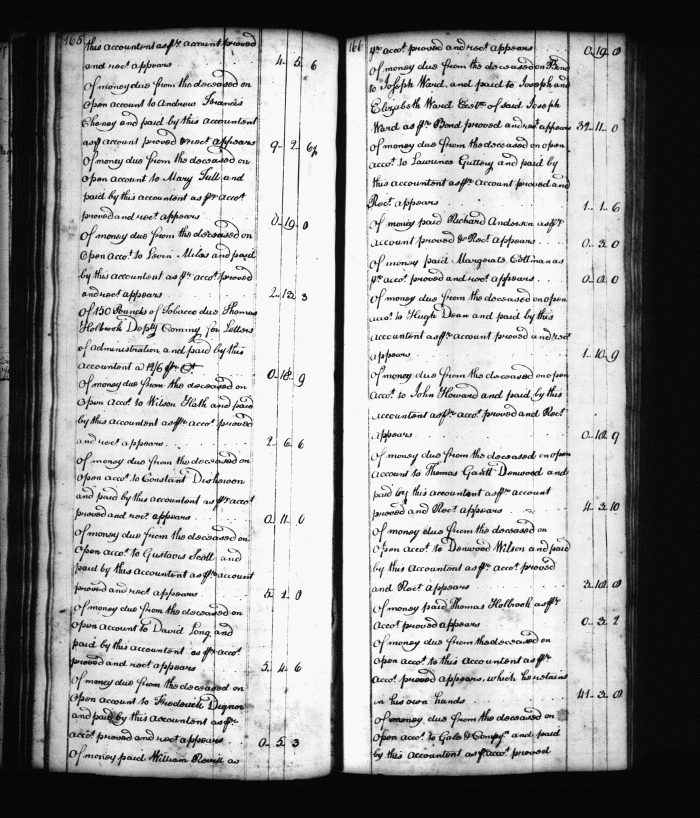 165
this accountant as pr. account proved
and rect appears 4. 5. 6
Of money due from the deceased on
Open account to Andrew Francis
Cheney and paid by this accountant
as pr account proved & rect appears 9. 2. 6½
Of money due from the deceased on
Open account to Mary Tull and
paid by this accountant as pr. accot.
proved and rect. appears 0. 19. 0
Of money due from the deceased on
Open accot. to Levin Miles and paid
by this accountant as pr. accot. proved
and rect appears 2. 13. 3
Of 150 Pounds of Tobacco due Thomas
Holbrook Depty Commy for Letters
of administration and paid by this
accountant @ 12/6 pr. Ct 0. 18. 9
Of money due from the deceased on
Open accot. to Wilson Heath and paid
by this accountant as pr. accot. proved
and rect appears 2. 6. 6
Of money due from the deceased on
Open accot. to Constant Disharoon
and paid by this accountant as pr accot.
proved and rect appears 0. 11. 0
Of money due from the deceased on
Open accot. to Gustavus Scott and
paid by this Accountant as pr. account
proved and rect appears 5. 1. 0
Of money due from the deceased on
Open account to David Long and
paid by this accountant as pr. accot.
proved and rect appears 5. 4. 6
Of money due from the deceased on
Open account to Frederick Dignor
and paid by this Accountant as pr
accot. proved and rect appears 0. 5. 3
Of money paid William as
166
pr. accot. proved and rect appears 0. 19. 0
Of money due from the deceased on Bond
to Joseph Ward, and paid to Joseph and
Elizabeth Ward Exrs. of said Joseph
Ward as pr. Bond proved and rect appears 11. 0
Of money due from the deceased on open
accot. to Lawrence Guttery and paid by
this accountant as pr. account proved and
Rect appears 1. 1. 6
Of money paid Richard Anderson as pr.
account proved & Rect appears 0. 3. 0
Of money paid Margerate Coltman as
pr accot. proved and rect appears
Of money due from the deceased on open
accot. to Hugh Dean and paid by this
accountant as pr. account proved and rect
appears 1. 10. 9
Of money due from the deceased on open
accot. to John Howard and paid by this
accountant as pr. accot. proved and Rect
appears
Of money due from the deceased on open
account to Thomas Denwood and
paid by this accountant as pr account
proved and Rect appears 4. 3. 10
Of money due from the deceased on
Open accot. to Denwood Wilson and paid
by this Accountant as pr. accot. proved
and Rect appears
Of money paid Thomas Holbrook as pr.
Accot. proved appears 0. 3. 2
Of money due from the deceased on
Open accot. to this Accountant as pr.
Accot. proved appears, which he retains
in his own hands 41. 3. 0
Of money due from the deceased on
Open accot. to Gale & Compy. and paid
by this Accountant as pr. accot. proved